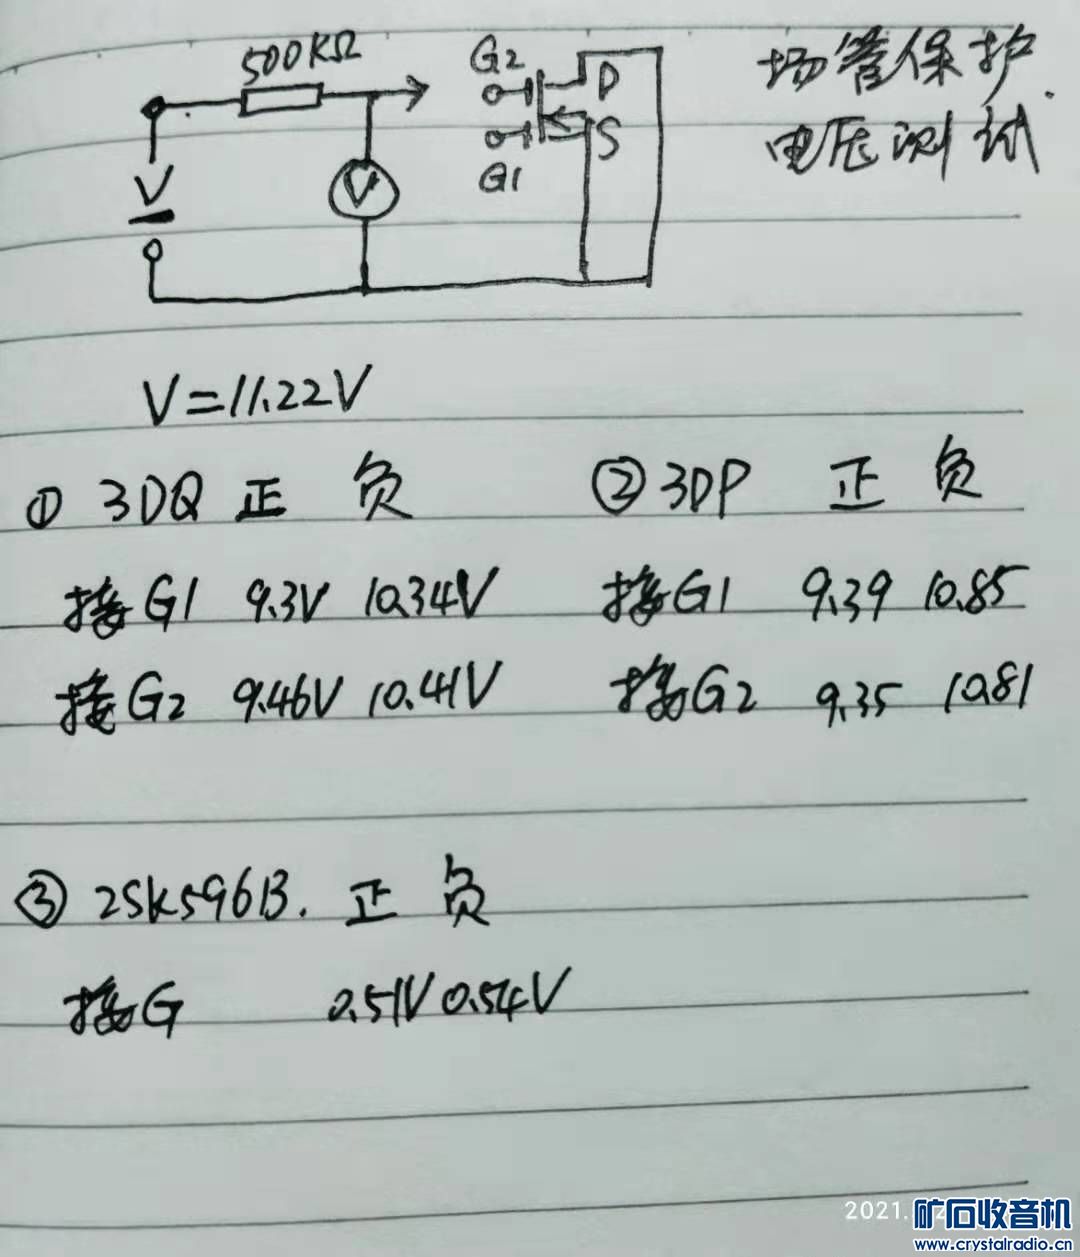 500KΩ
G2
D
S
G1
V
V
场管保护
电压测试
V=11.22V
① 3DQ 正 负
接G1 9.3V 10.34V
接G2 9.46V 10.41V
② 3DP 正 负
接G1 9.39 10.85
接G2 9.35 10.81
③ 2SK596B. 正 负
接G 0.51V 0.54V
2021.
矿石收音机
www.crystalradio.cn